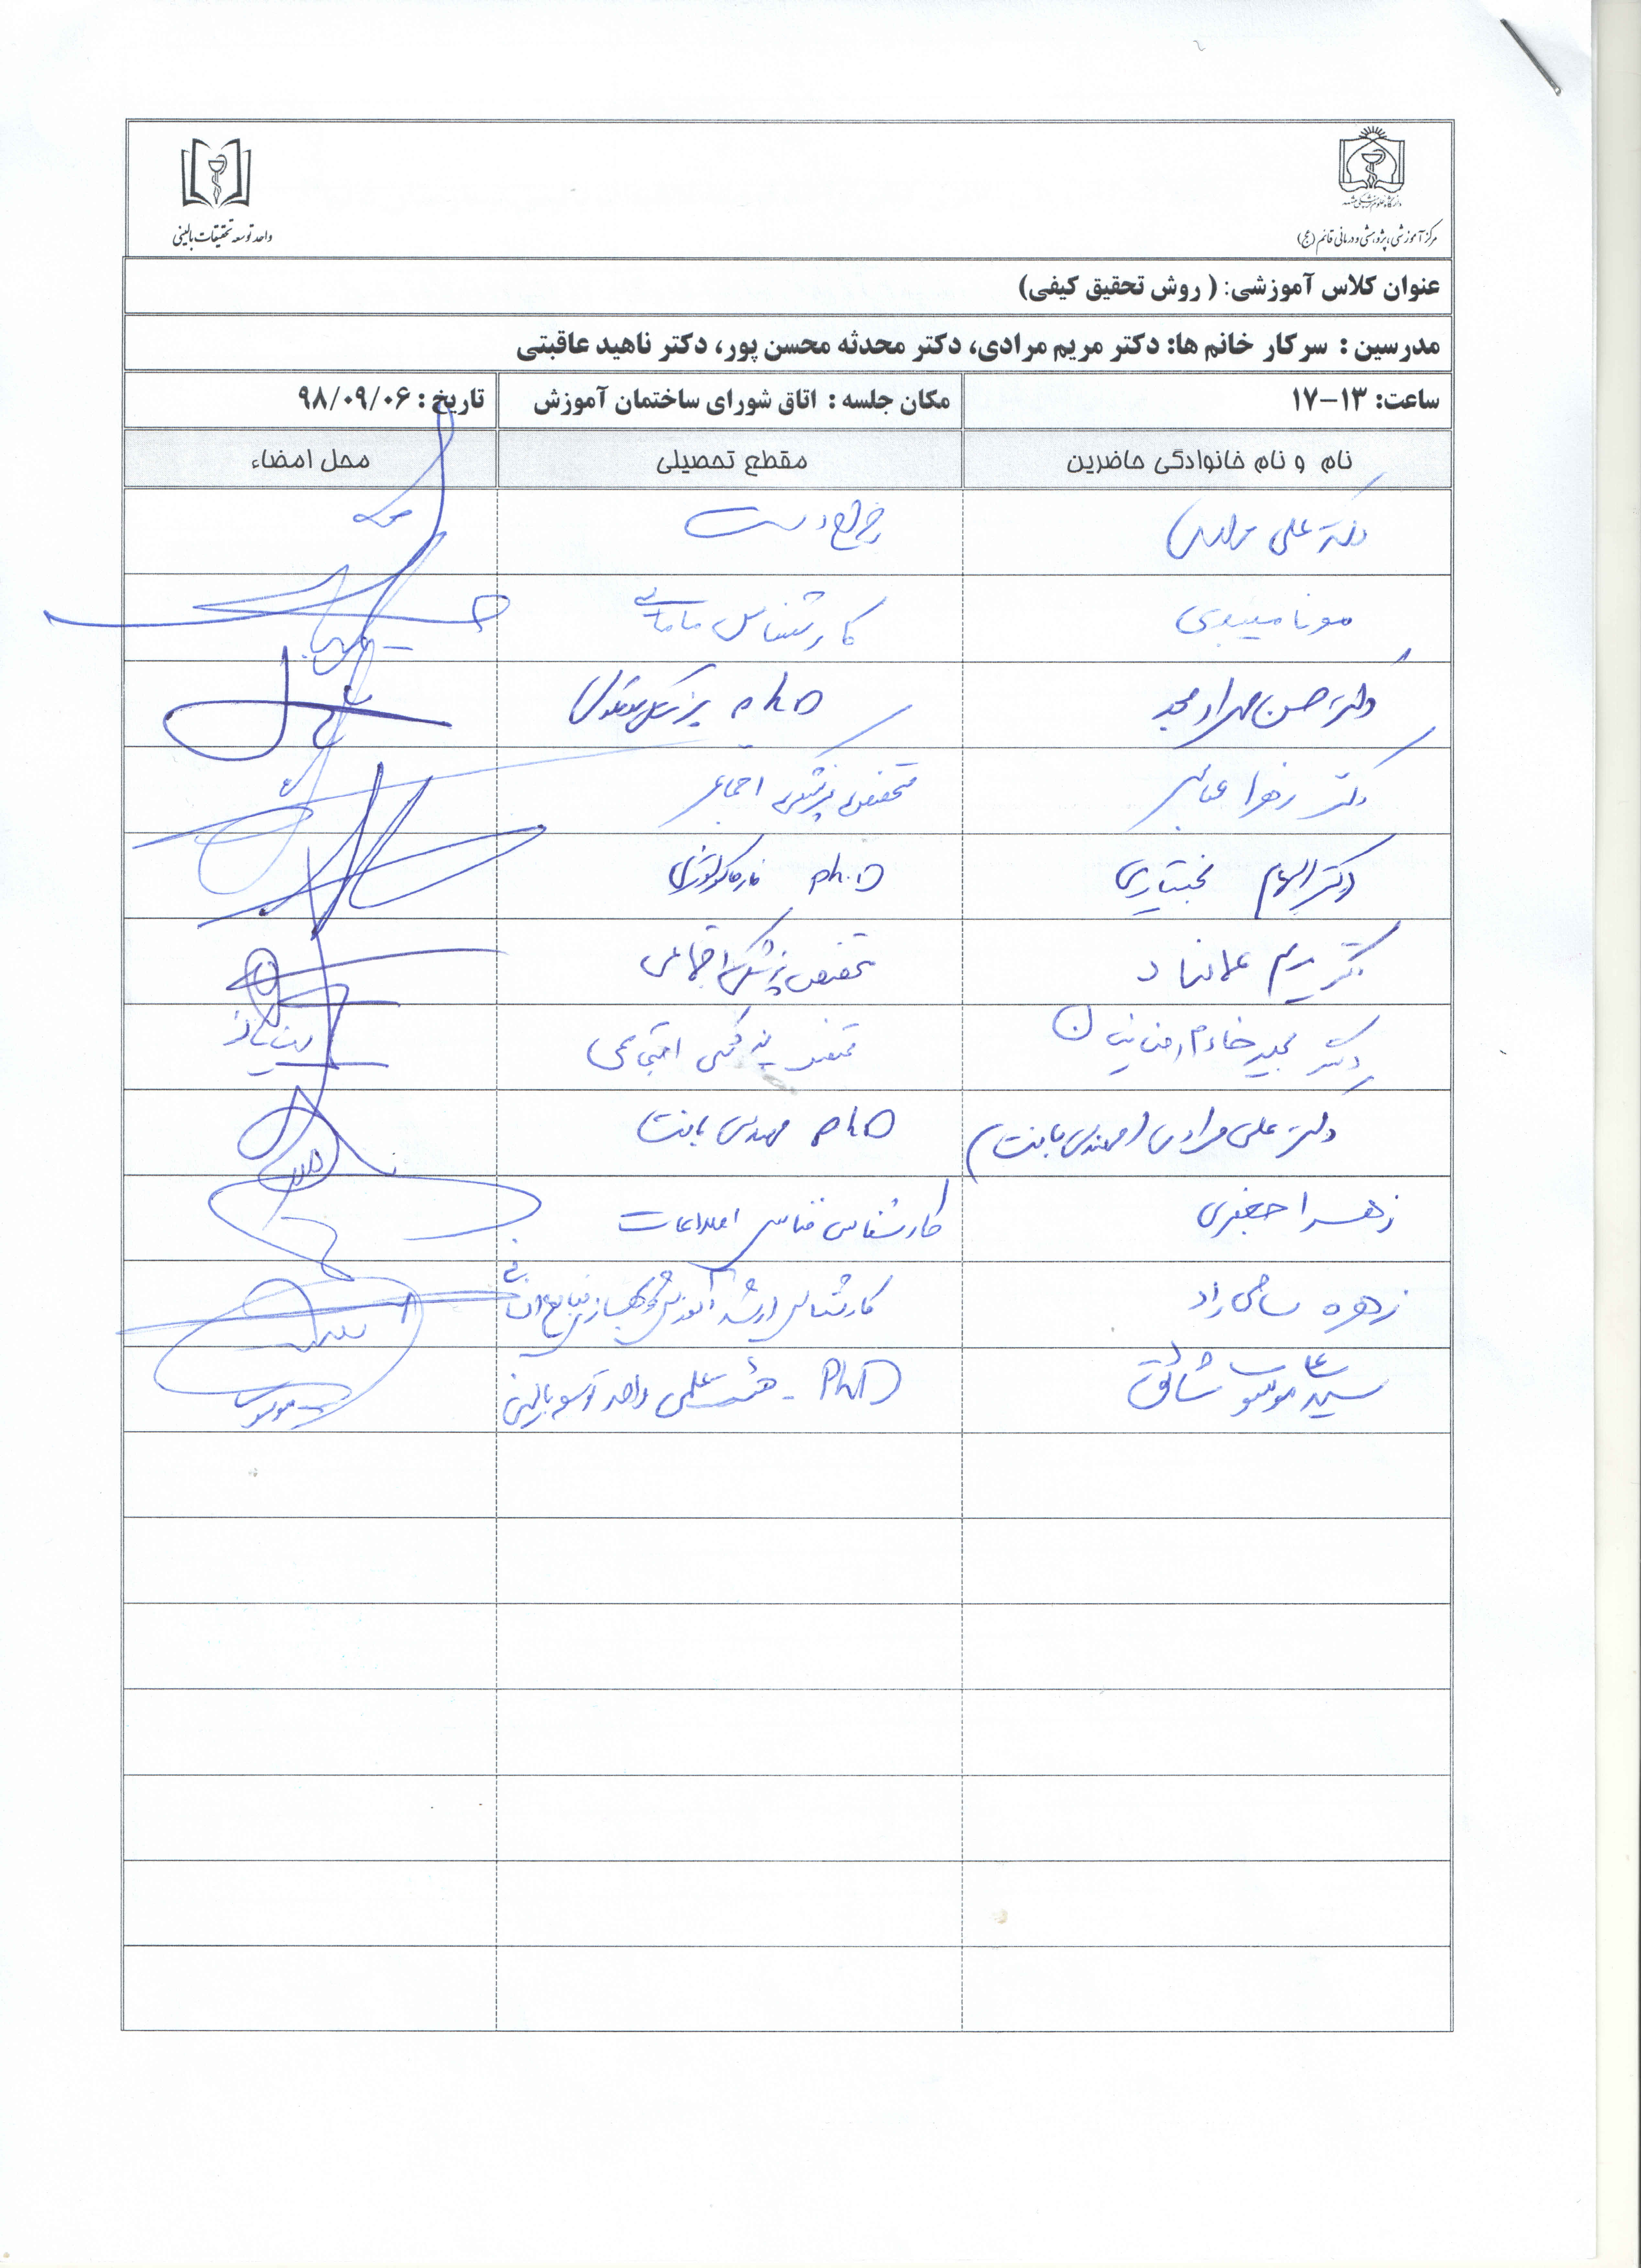 دانشگاه علوم پزشکی مشهد
مرکز آموزشی، پژوهشی و درمانی قائم (عج)
واحد توسعه تحقیقات بالینی
عنوان کلاس آموزشی: ( روش تحقیق کیفی)
مدرسین : سرکار خانم ها: دکتر مریم مرادی، دکتر محدثه محسن پور، دکتر ناهید عاقبتی
ساعت: ۱۳-۱۷ مکان جلسه : اتاق شورای ساختمان آموزش تاریخ : ۹۸/۰۹/۰۶
نام و نام خانوادگی حاضرین مقطع تحصیلی محل امضاء
دکتر علی مرادی جراح دست
مونا میبدی کارشناس مامایی
دکتر حسن مهراد مجد PhD پزشکی مولکولی
دکتر زهرا عباسی متخصص پزشکی اجتماعی
دکتر الهام بختیاری Ph.D فارماکولوژی
دکتر مریم متخصص پزشکی اجتماعی
دکتر مجید خادم رضاییان متخصص پزشکی اجتماعی
دکتر علی مرادی (مهندسی بافت) PhD مهندسی بافت
زهرا جعفری کارشناس فناوری اطلاعات
زهره کارشناس ارشد آموزش و بهسازی منابع انسانی
PhD - هیئت علمی واحد توسعه بالینی